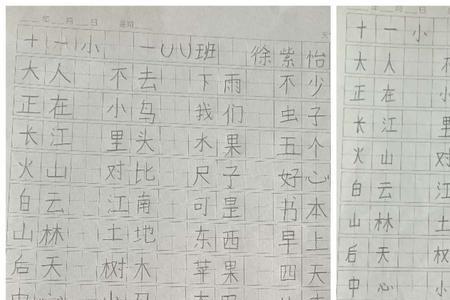 年 月 日 星期
十一小 一八八班 徐紫怡
大人 不去 下雨 不少
正在 小鸟 我们 虫子
长江 里头 水果 五个
火山 对比 尺子 好心
白云 江南 可是 书本
山林 土地 东西 早上
后天 树木 苹果 四天
中心 小
十一小
大人
正在 小
长江 里
火山 对
白云 江
山林 土
后天 权
中心 小